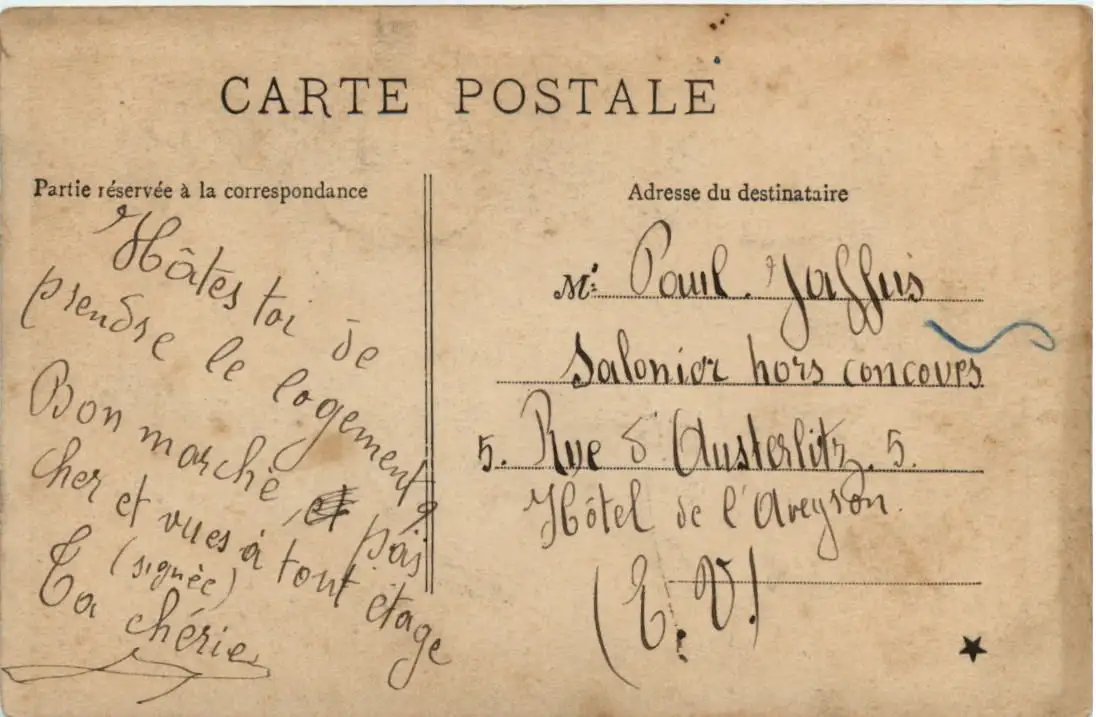 CARTE POSTALE
Partie réservée à la correspondance
Hâtes toi de
prendre le logement
Bon marché, et pas
cher et vues à tout étage
(signée)
Ta chérie
Adresse du destinataire
Mr. Paul Jaffuis
Salonier hors concours
5. Rue d'Austerlitz. 5.
Hôtel de l'Aveyron.
(E. V.)